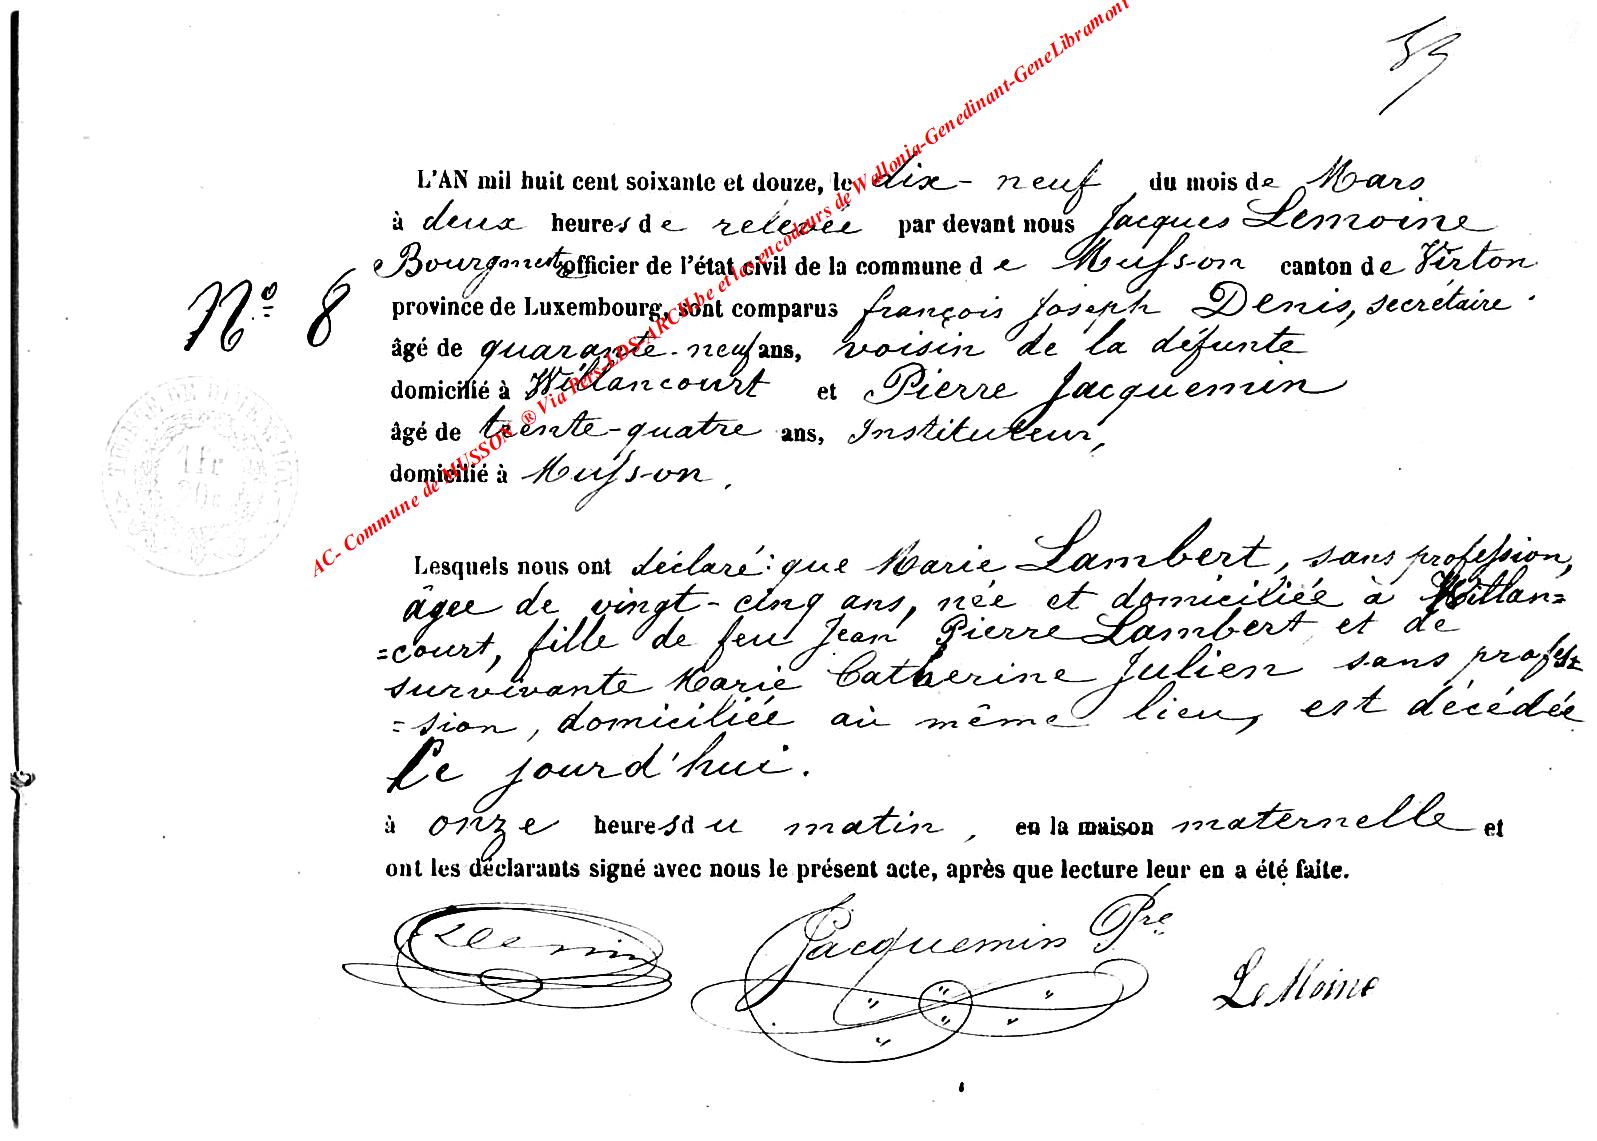 59
L'AN mil huit cent soixante et douze, le dix-neuf du mois de Mars
à deux heures de relevée par devant nous Jacques Lemoine
Bourgmestre officier de l'état civil de la commune de Musson canton de Virton
N° 8
province de Luxembourg, sont comparus françois Joseph Denis, secrétaire
âgé de quarante-neuf ans, voisin de la défunte
domicilié à Willancourt et Pierre Jacquemin
âgé de trente-quatre ans, Instituteur,
domicilié à Musson.
TIMBRE DE DIMENSION
1 fr
20c
AC- Commune de MUSSON ® Via Pers-LDS-ARCH.be et les encodeurs de Wallonia-Genedinant-GeneLibramont
Lesquels nous ont déclaré: que Marie Lambert, sans profession,
âgée de vingt-cinq ans, née et domiciliée à Willan=
=court, fille de feu Jean Pierre Lambert et de
survivante Marie Catherine Julien sans profes=
=sion, domiciliée au même lieu, est décédée
Ce jourd'hui.
à onze heures du matin, en la maison maternelle et
ont les déclarants signé avec nous le présent acte, après que lecture leur en a été faite.
Jacquemin Pre
LeMoine